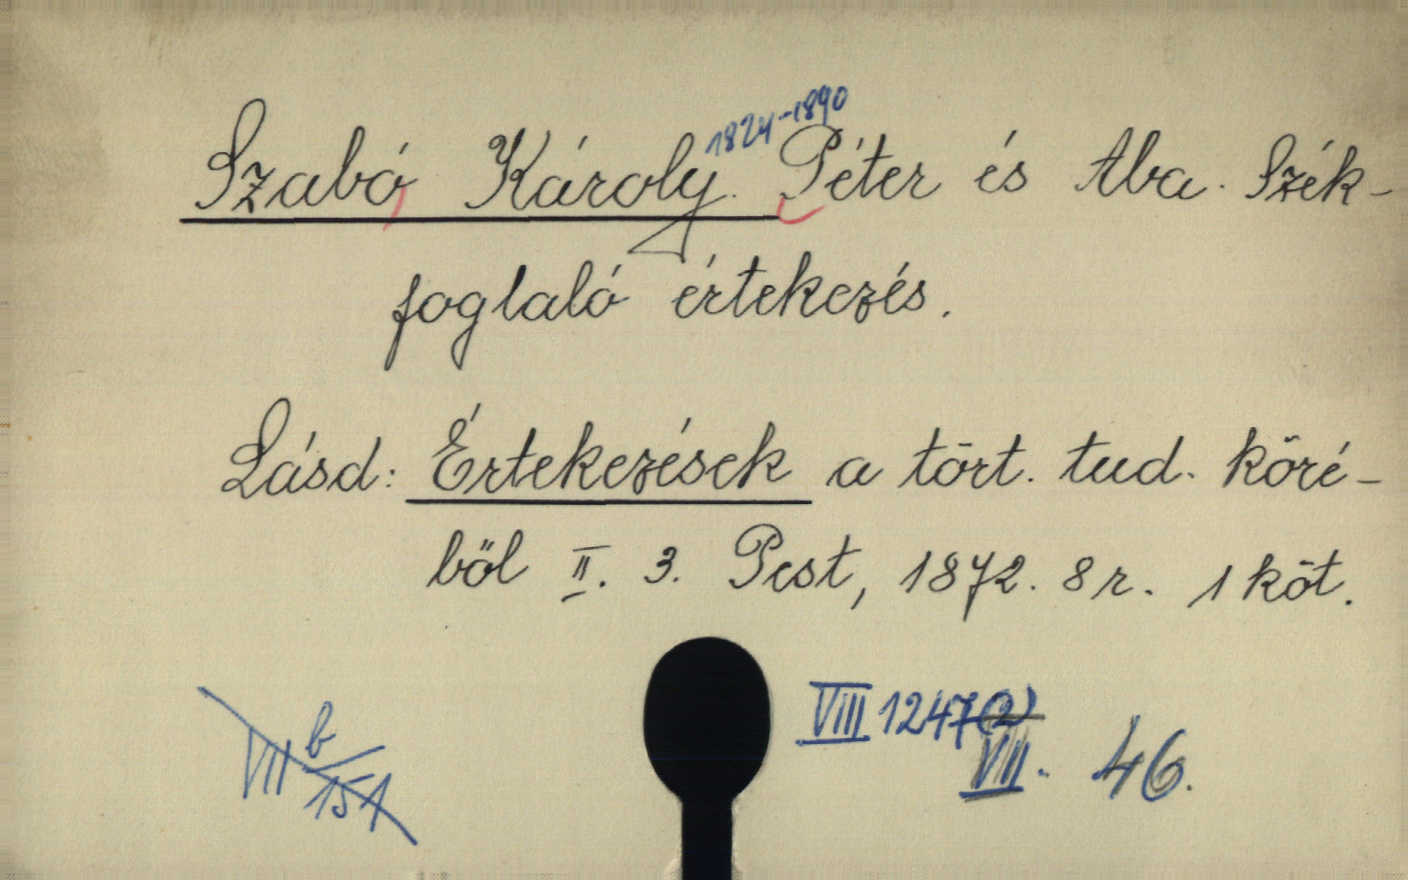 Szabó, Károly. 1824-1890 Péter és Aba. Szék-
foglaló értekezés.
Lásd: Értekezések a tört. tud. köré-
ből II. 3. Pest, 1872. 8 r. 1 köt.
VIII 1247(2)
VII b/151
VIII. 46.